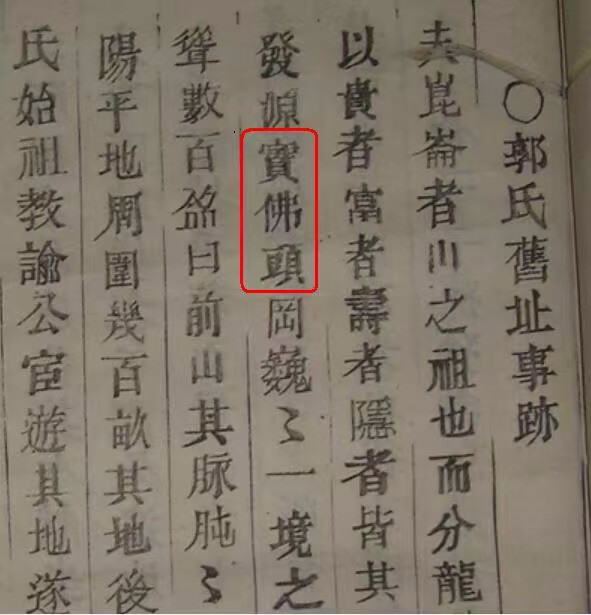 ○郭氏舊址事跡
夫崑崙者山之祖也而分龍
以貴者富者壽者隱者皆其
發源寶佛頭岡巍〻一境之
聳數百餘曰前山其脉肫〻
陽平地周圍幾百畝其地後
氏始祖教諭公宦遊其地遂